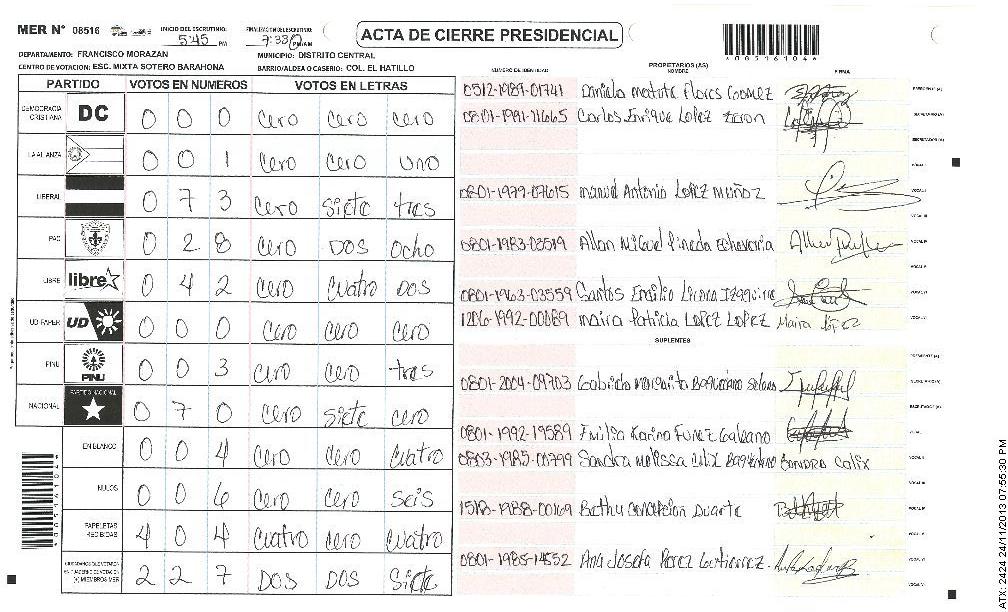 MER N° 08516 INICIO DEL ESCRUTINIO: 5:45 PM FINALIZACION DEL ESCRUTINIO: 7:33 PM/AM ACTA DE CIERRE PRESIDENCIAL
DEPARTAMENTO: FRANCISCO MORAZAN MUNICIPIO: DISTRITO CENTRAL
CENTRO DE VOTACION: ESC. MIXTA SOTERO BARAHONA BARRIO/ALDEA O CASERIO: COL. EL HATILLO
NUMERO DE IDENTIDAD PROPIETARIOS (AS) NOMBRE FIRMA
PARTIDO VOTOS EN NUMEROS VOTOS EN LETRAS
DEMOCRACIA CRISTIANA DC 0 0 0 cero cero cero
LA ALIANZA 0 0 1 cero cero uno
LIBERAL 0 7 3 cero siete tres
PAC 0 2 8 cero DOS ocho
LIBRE libre 0 4 2 cero cuatro DOS
UD FAPER UD 0 0 0 cero cero cero
PINU PINU 0 0 3 cero cero tres
NACIONAL PARTIDO NACIONAL 0 7 0 cero siete cero
EN BLANCO 0 0 4 cero cero cuatro
NULOS 0 0 6 cero cero seis
PAPELETAS RECIBIDAS 4 0 4 cuatro cero cuatro
2 2 7 DOS DOS siete
0512-1989-01741 Daniela Matute Flores Gomez
0801-1991-11665 Carlos Enrique Lopez
0801-1979-07615 manuel Antonio Lopez Muñoz
0801-1983-03519 Allan Miguel Pineda Echeverria
0801-1963-03559 Santos Emilio
1206-1992-00089 maira Patricia LOPEZ LOPEZ Maira López
SUPLENTES
0801-2004-09703 Gabriela Margarita
0801-1992-19589 Emilia Karina Funez Galeano
0803-1985-00799 Sandra melissa Calix SANDRA Calix
Concepcion Duarte
0801-1985-14552 Ana Josefa Perez Gutierrez
ATX: 2424 24/11/2013 07:55:30 PM